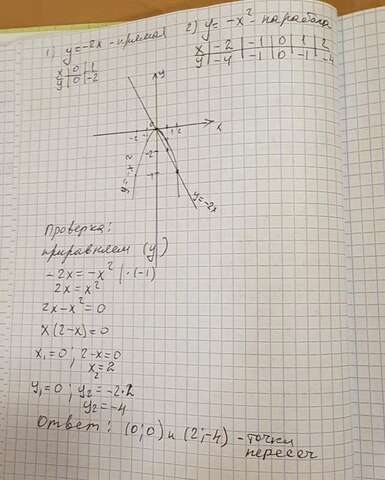 1) y=-2x - прямая
x | 0 | 1
y | 0 | -2
2) y= -x² - парабола
x | -2 | -1 | 0 | 1 | 2
y | -4 | -1 | 0 | -1 | -4
y
0
-2 -1 1 2
x
-2
y=-x²
y=-2x
Проверка:
приравняем (y)
-2x=-x² | ·(-1)
2x=x²
2x-x²=0
x(2-x)=0
x₁=0; 2-x=0
x₂=2
y₁=0; y₂=-2·2
y₂=-4
Ответ: (0;0) и (2;-4) - точки
пересеч